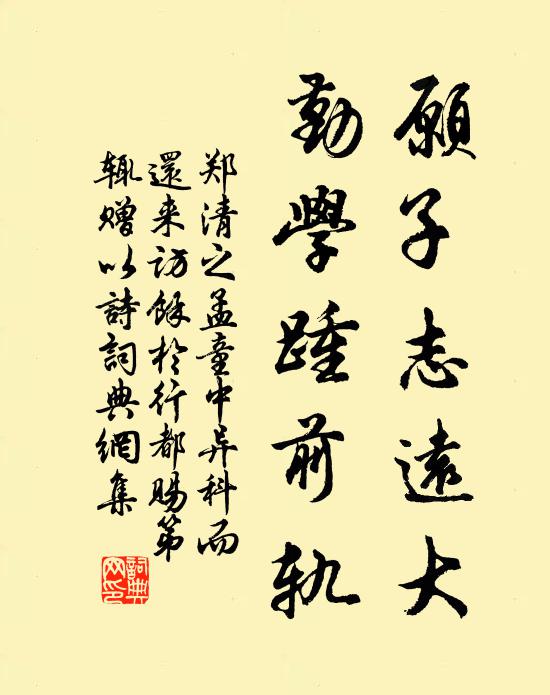 願子志遠大
勤學踵前軌
郑清之孟童中异科而
還来访餘於行都赐第
辄赠以詩詞典網集
詞典网印